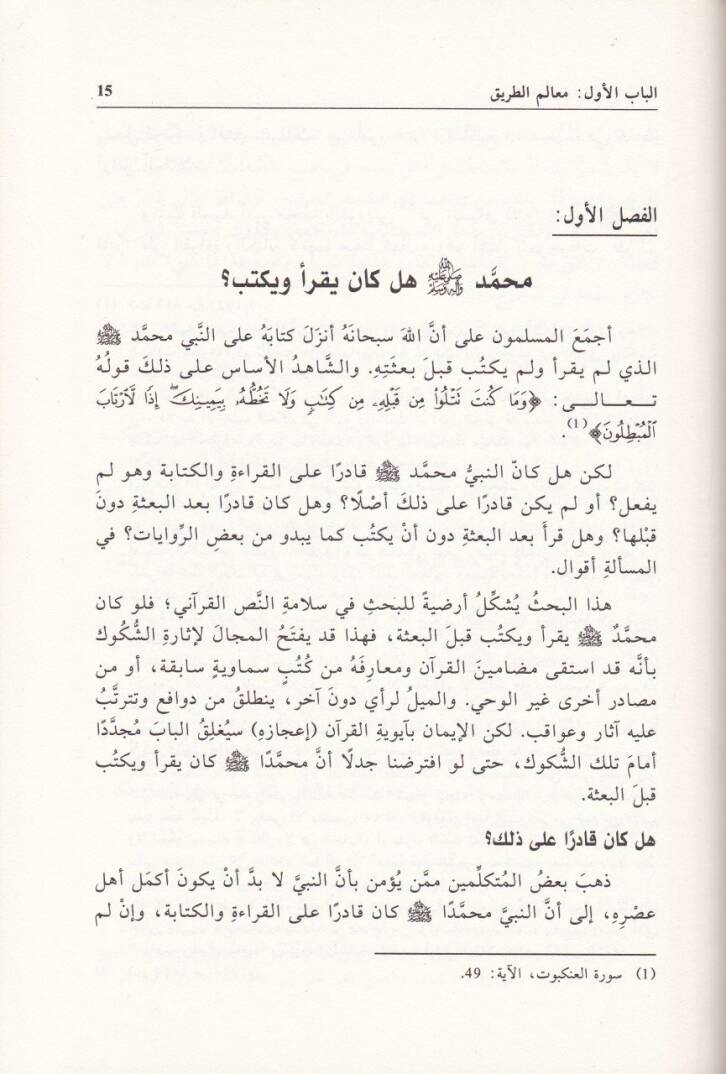 الباب الأول: معالم الطريق 15
الفصل الأول:
محمَّد ﷺ هل كان يقرأ ويكتب؟
أجمَعَ المسلمون على أنَّ اللهَ سبحانَهُ أنزلَ كتابَهُ على النَّبي محمَّد ﷺ
الذي لم يقرأ ولم يكتُب قبلَ بعثَتِهِ. والشَّاهدُ الأساس على ذلكَ قولُهُ
تعـالـى: ﴿وَمَا كُنتَ تَتْلُوا۟ مِن قَبْلِهِۦ مِن كِتَٰبٍ وَلَا تَخُطُّهُۥ بِيَمِينِكَ ۖ إِذًا لَّٱرْتَابَ
ٱلْمُبْطِلُونَ﴾(1).
لكن هل كانّ النبيُّ محمَّد ﷺ قادرًا على القراءةِ والكتابة وهو لم
يفعل؟ أو لم يكن قادرًا على ذلكَ أصْلًا؟ وهل كان قادرًا بعد البعثة دونَ
قبْلها؟ وهل قرأَ بعد البعثةِ دون أنْ يكتُب كما يبدو من بعضِ الرِّوايات؟ في
المسألةِ أقوال.
هذا البحثُ يُشكِّلُ أرضيةً للبَحثِ في سلامةِ النَّص القرآني؛ فلو كان
محمَّدٌ ﷺ يقرأ ويكتُب قبلَ البعثة، فهذا قد يفتَحُ المجال لإثارةِ الشُّكوك
بأنَّه قد استقى مضامينَ القرآن ومعارفَهُ من كُتُبٍ سماويةٍ سابقة، أو من
مصادر أخرى غير الوحي. والميلُ لرأي دونَ آخر، ينطلقُ من دوافع وتترتَّبُ
عليه آثار وعواقب. لكن الإيمان بآيويةِ القرآن (إعجازهِ) سيُغلِقُ البابَ مُجدَّدًا
أمامَ تلك الشُّكوك، حتى لو افترضنا جدلًا أنَّ محمَّدًا ﷺ كان يقرأ ويكتُب
قبلَ البعثة.
هل كان قادرًا على ذلك؟
ذهبَ بعضُ المُتكلِّمين ممَّن يُؤمن بأنَّ النبيَّ لا بدَّ أنْ يكونَ أكمَل أهل
عصْرِهِ، إلى أنَّ النبيَّ محمَّدًا ﷺ كان قادرًا على القراءةِ والكتابة، وإنْ لم
(1) سورة العنكبوت، الآية: 49.